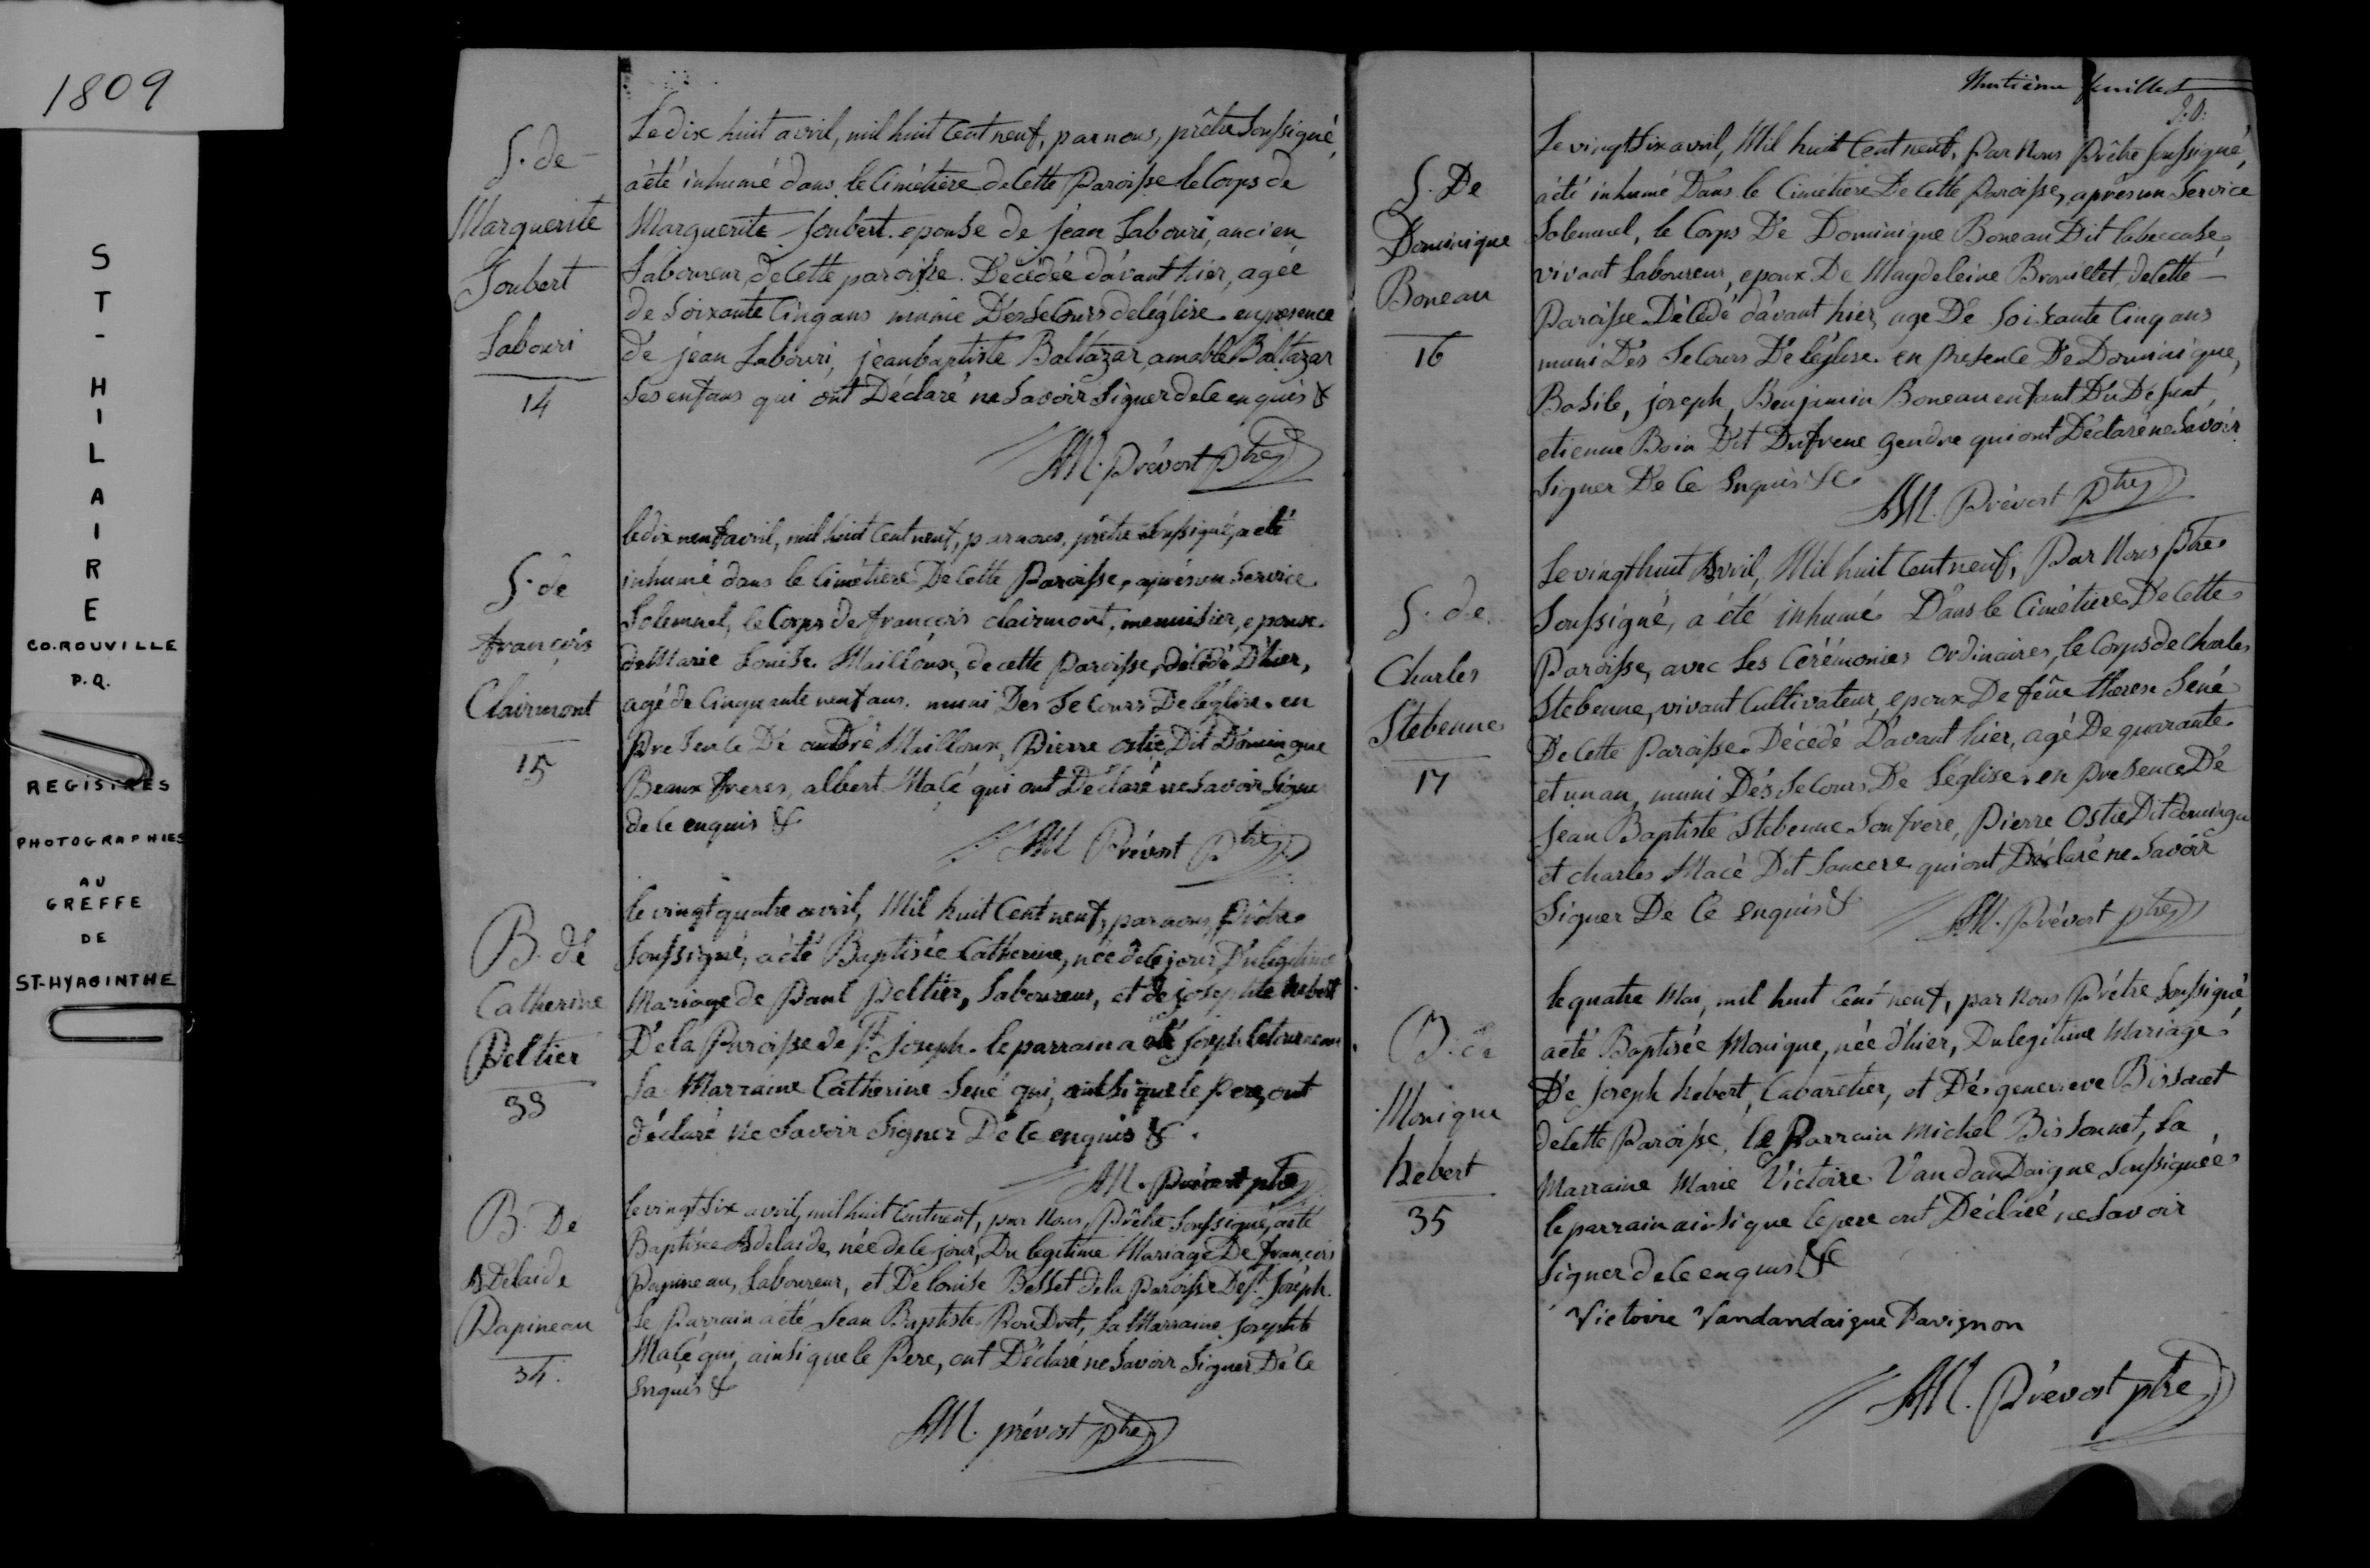 1809
ST-HILAIRE
CO. ROUVILLE
P.Q.
REGISTRES
PHOTOGRAPHIES
AU
GREFFE
DE
ST-HYACINTHE
S. de
Marguerite
Joubert
Labouri
14
Le dix huit avril, mil huit Cent neuf, par nous, prêtre Soussigné,
a été inhumé dans le Cimétiere de Cette Paroisse le Corps de
Marguerite Joubert epouse de jean Labouri, ancien
Laboureur de Cette paroisse. Décédée d'avant hier, agée
de Soixante Cinq ans munie Des Secours de l'église en presence
de jean Labouri, jean baptiste Baltazar, amable Baltazar
Ses enfans qui ont Déclaré ne Savoir Signer de Ce enquis &
AM. Prévost Ptre
S. de
françois
Clairmont
15
le dix neuf avril, mil huit Cent neuf, par nous, prêtre Soussigné, a été
inhumé dans le Cimétiere De Cette Paroisse, après un Service
Solemnel, le Corps de françois clairmont, menuisier, epoux
de Marie Louise Mailloux, de cette Paroisse, décédé D'hier,
agé de Cinquante neuf ans. muni Des Secours De l'église. en
Presence De andré Mailloux, Pierre ostie Dit Domingue
Beaux freres, albert Macé qui ont Déclaré ne Savoir Signer
de Ce enquis &
AM Prévost Ptre
B. de
Catherine
Peltier
33
le vingt quatre avril, Mil huit Cent neuf, par nous, Prêtre
Soussigné, a été Baptisée Catherine, née de Ce jour Du legitime
Mariage de Paul Peltier, Laboureur, et de josephte hebert
De la Paroisse de St. Joseph. le parrain a été Joseph letourneau
La Marraine Catherine Sené qui, ainsi que le Pere, ont
déclaré ne Savoir Signer De Ce enquis &.
AM. Prévost ptre
B. De
Adelaide
Papineau
34.
le vingt Six avril, mil huit Cent neuf, par Nous, Prêtre Soussigné, a été
Baptisée Adelaide, née de Ce jour, Du legitime Mariage De françois
Papineau, Laboureur, et De louise Besset de la Paroisse De St. Joseph.
Le Parrain a été Jean Baptiste, La Marraine Josephte
Macé qui, ainsi que le Pere, ont Déclaré ne Savoir Signer De Ce
Enquis &
AM. prévost Ptre
Huitième feuillet
S. De
Dominique
Boneau
16
Le vingt Six avril, Mil huit Cent neuf, Par Nous Prêtre Soussigné,
a été inhumé Dans le Cimétiere De Cette Paroisse, après un Service
Solemnel, le Corps De Dominique Boneau Dit labeccase,
vivant Laboureur, epoux De Magdeleine Brouillet, de Cette
Paroisse. Décédé d'avant hier, agé De Soixante Cinq ans
muni Des Secours De l'église. en Presence De Dominique,
Basile, joseph, Benjamin Boneau enfant Du Defunt,
etienne Boin Dit Dufrene Gendre qui ont Déclaré ne Savoir
Signer De Ce Enquis &c
AM. Prévost Ptre
S. de
Charles
Stebenne
17
Le vingt huit Avril, Mil huit Cent neuf, Par Nous Ptre
Soussigné, a été inhumé Dans le Cimétiere De Cette
Paroisse, avec Les Cérémonies Ordinaires, le Corps de Charles
Stebenne, vivant Cultivateur, epoux De feüe therese Sené
De Cette Paroisse. Décédé D'avant hier, agé De quarante
et un an, muni Des Secours De l'église. en Presence De
Jean Baptiste Stebenne Son frere, Pierre Ostie Dit domingue
et charles Macé Dit Sancere qui ont Déclaré ne Savoir
Signer De Ce enquis &
AM. Prévost ptre
B. de
Monique
hebert
35
le quatre Mai, mil huit Cent neuf, par Nous Prêtre Soussigné,
a été Baptisée Monique, née d'hier, Du legitime Mariage
De Joseph hebert, Cabaretier, et De genevieve Bissonet
de Cette Paroisse, le Parrain Michel Bissonnet, la
Marraine Marie Victoire Vandandaigue Soussignée
le parrain ainsi que le pere ont Déclaré ne Savoir
Signer de Ce enquis &c
Victoire Vandandaigue Davignon
AM. Prévost ptre